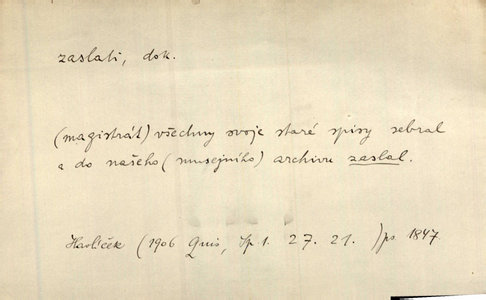 zaslati, dok.
(magistrát) všechny svoje staré spisy sebral
a do našeho (musejního) archivu zaslal.
Havlíček (1906 Quis, Sp 1. 27. 21.) ps 1847